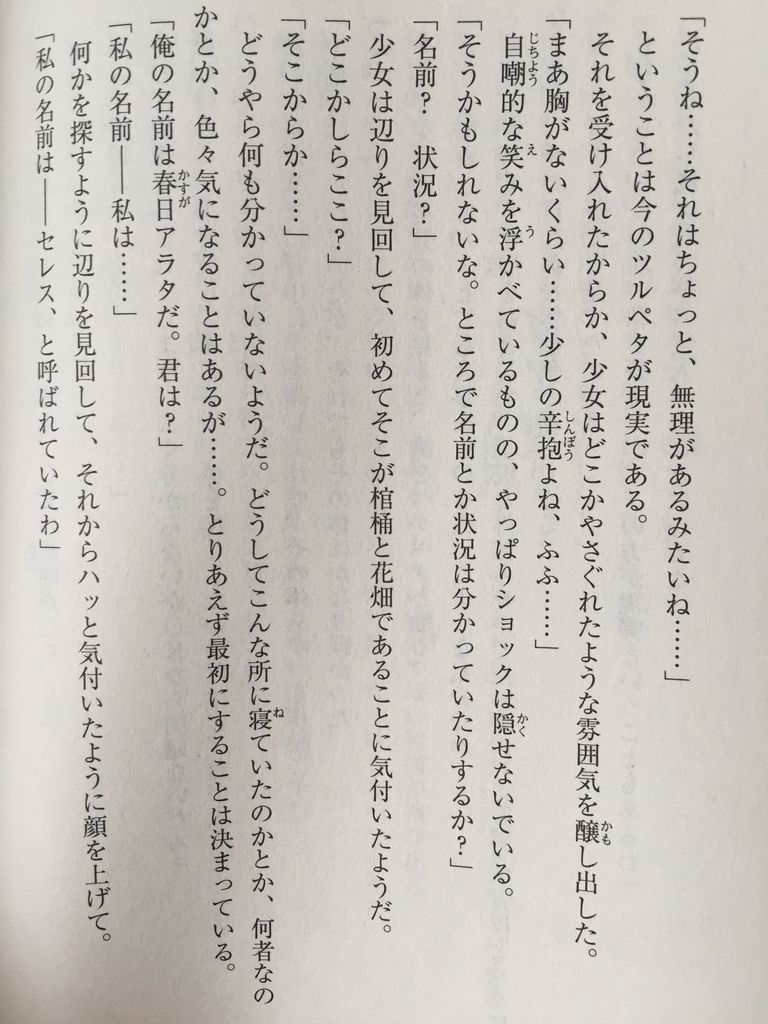 「そうね……それはちょっと、無理があるみたいね……」
ということは今のツルペタが現実である。
それを受け入れたからか、少女はどこかやさぐれたような雰囲気を醸し出した。
「まあ胸がないくらい……少しの辛抱よね、ふふ……」
自嘲的な笑みを浮かべているものの、やっぱりショックは隠せないでいる。
「そうかもしれないな。ところで名前とか状況は分かっていたりするか？」
「名前？　状況？」
少女は辺りを見回して、初めてそこが棺桶と花畑であることに気付いたようだ。
「どこかしらここ？」
「そこからか……」
どうやら何も分かっていないようだ。どうしてこんな所に寝ていたのかとか、何者なの
かとか、色々気になることはあるが……。とりあえず最初にすることは決まっている。
「俺の名前は春日アラタだ。君は？」
「私の名前――私は……」
何かを探すように辺りを見回して、それからハッと気付いたように顔を上げて。
「私の名前は――セレス、と呼ばれていたわ」